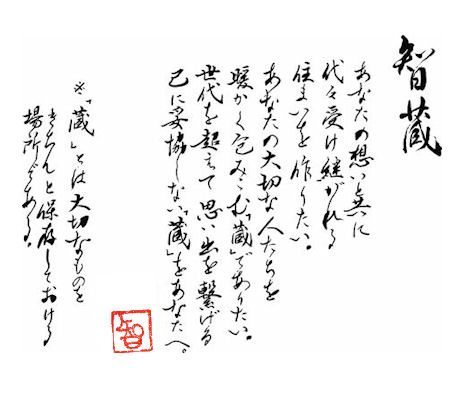 智蔵
あなたの想いと共に
代々受け継がれる
住まいを作りたい。
あなたの大切な人たちを
暖かく包みこむ「蔵」でありたい。
世代を超えて思い出を繋げる
己に妥協しない「蔵」をあなたへ。
※「蔵」とは大切なものを
きちんと保存しておける
場所である。
智